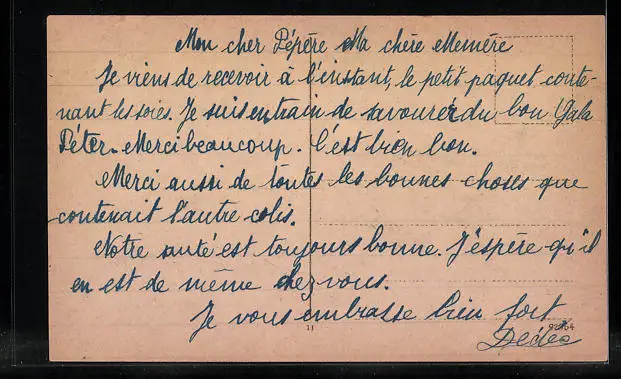 Mon cher Pépère Ma chère Memère
Je viens de recevoir à l'instant, le petit paquet conte-
nant les soies. Je suis en train de savourer du bon Gala
Péter. Merci beaucoup. C'est bien bon.
Merci aussi de toutes les bonnes choses que
contenait l'autre colis.
Notre santé est toujours bonne. J'éspère qu'il
en est de même chez vous.
Je vous embrasse bien fort
11
Dédée